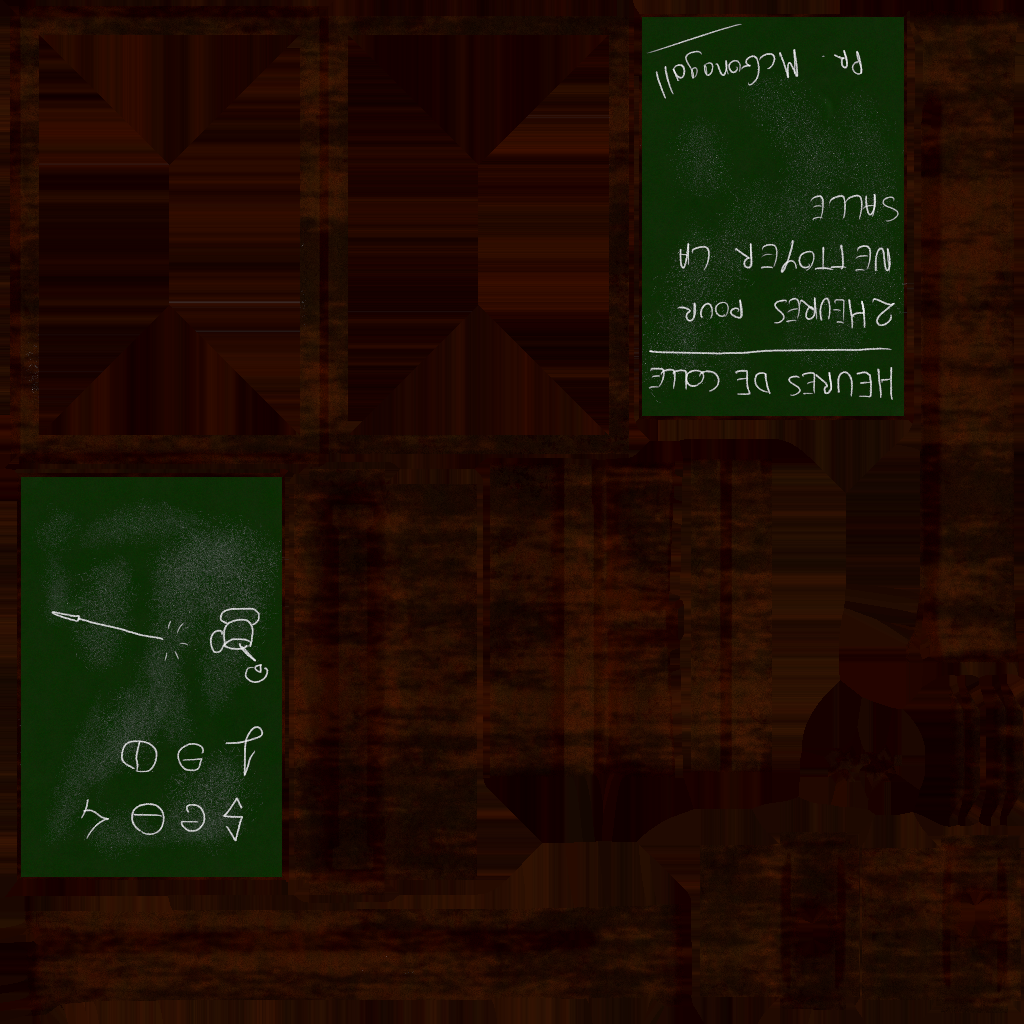 HEURES DE COLLE
2 HEURES POUR
NETTOYER LA
SALLE
PR. McGonagall